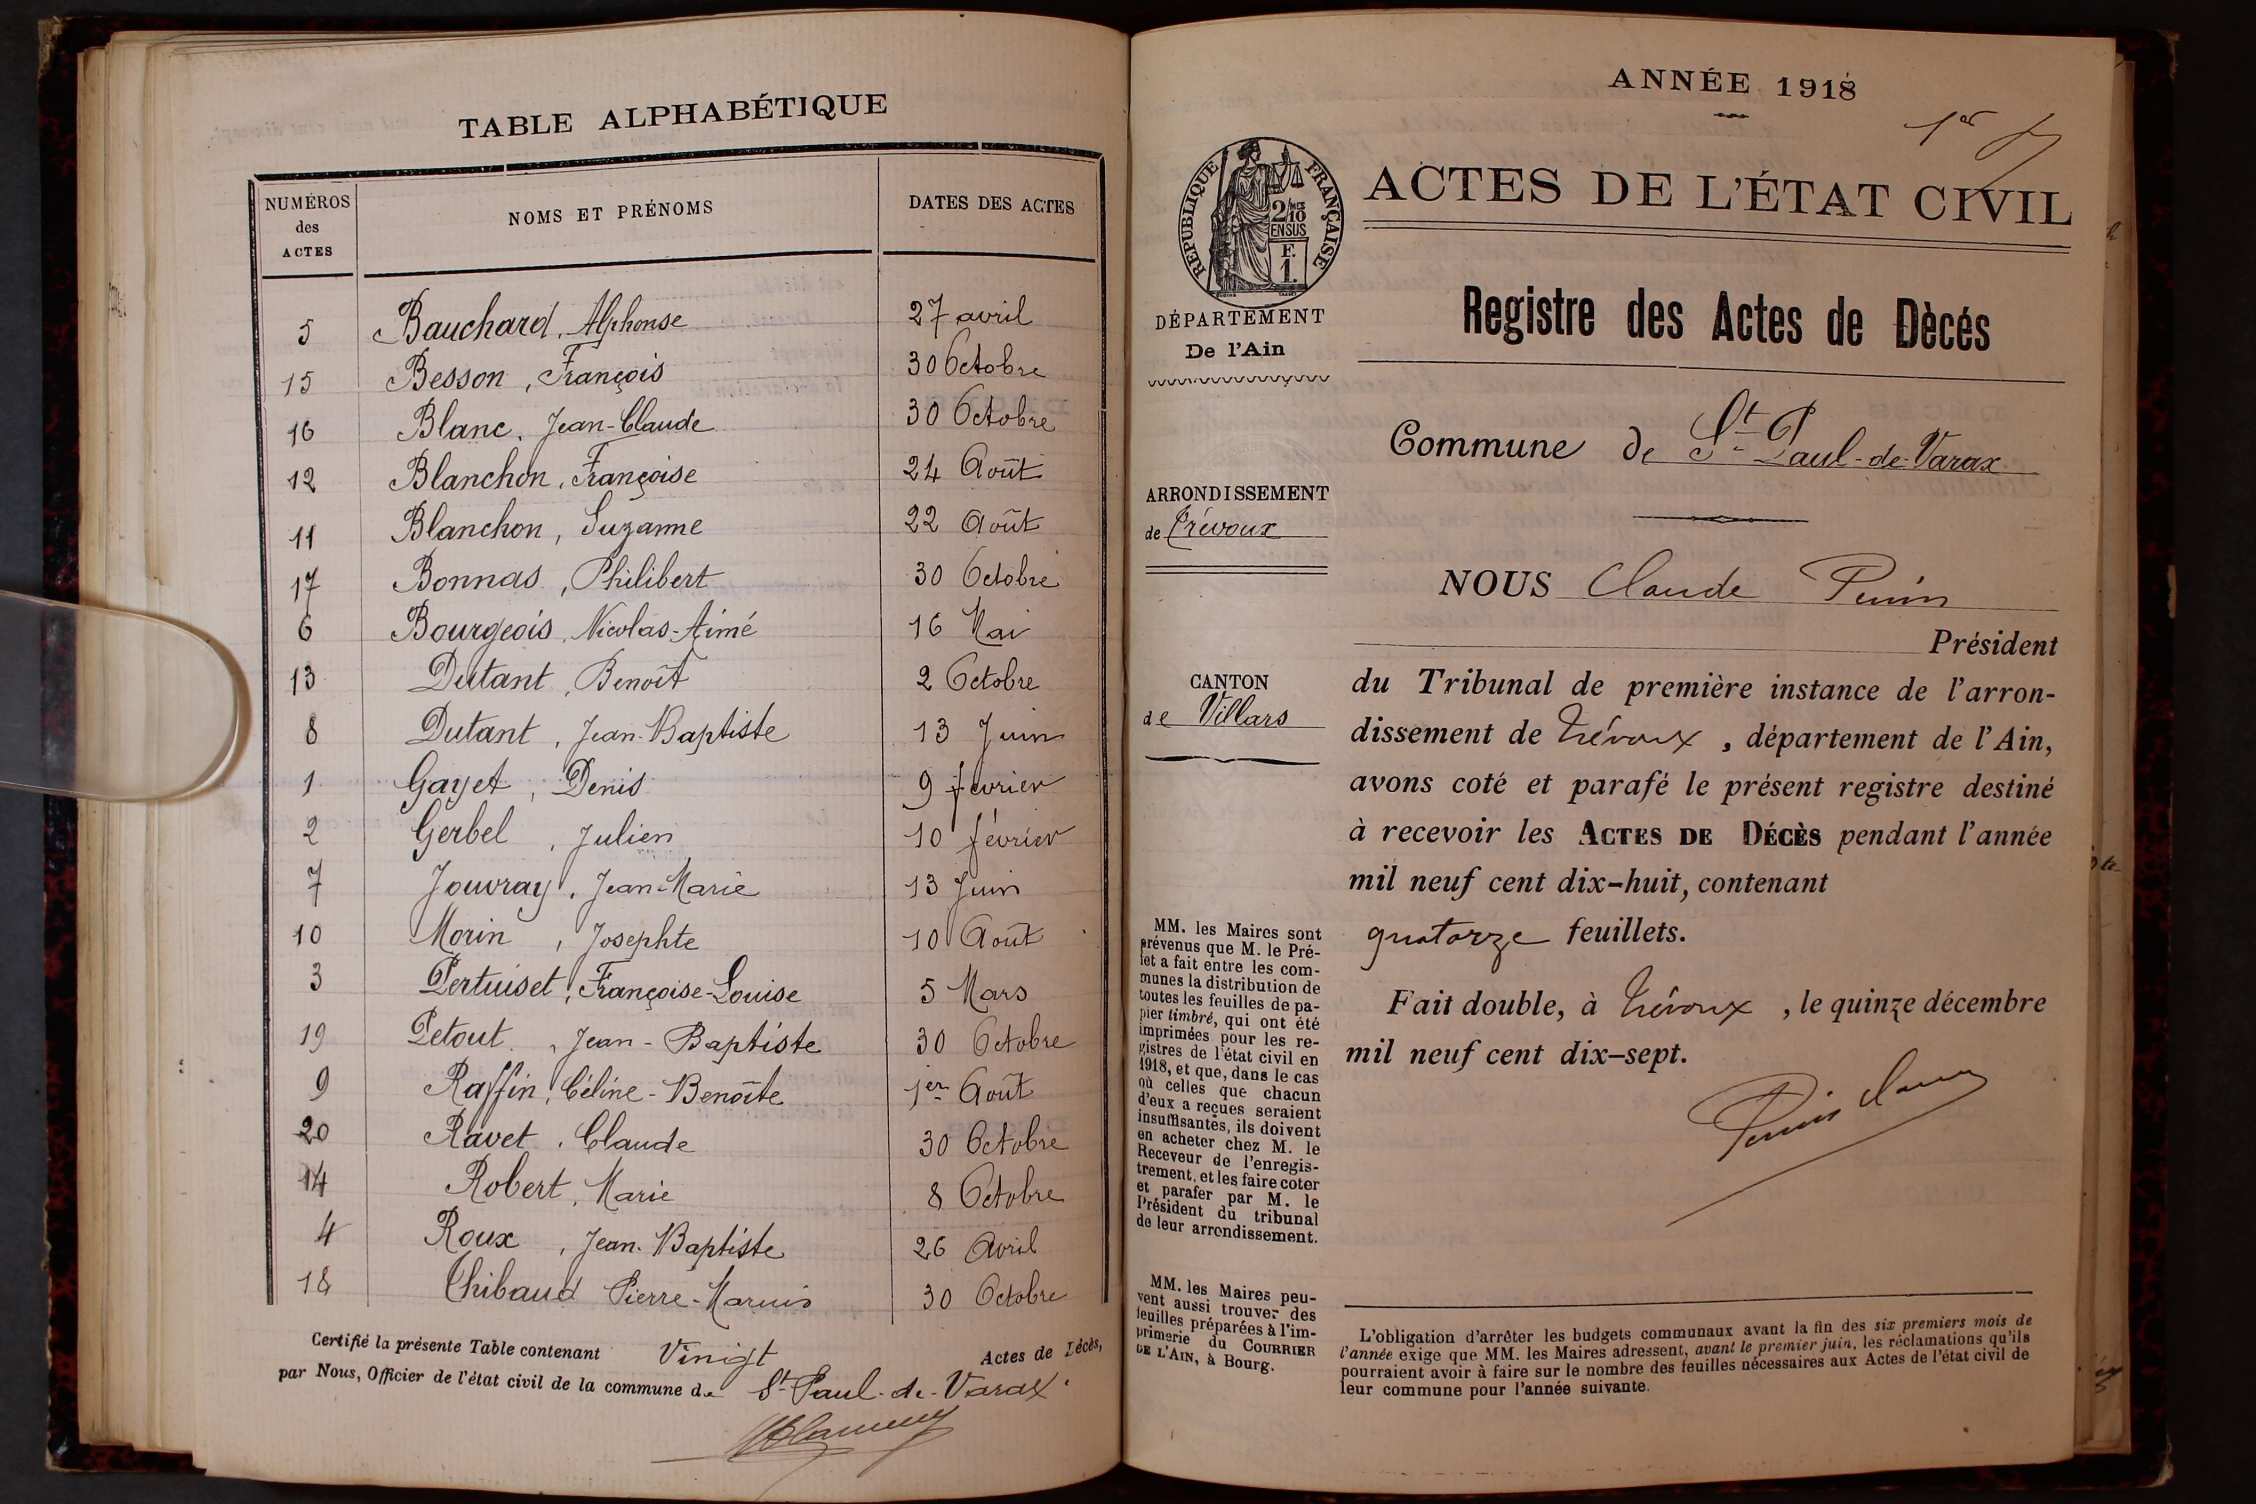 TABLE ALPHABÉTIQUE
NUMÉROS des ACTES NOMS ET PRÉNOMS DATES DES ACTES
5 Bauchard, Alphonse 27 avril
15 Besson, François 30 Octobre
16 Blanc, Jean-Claude 30 Octobre
12 Blanchon, Françoise 24 Août
11 Blanchon, Suzanne 22 Août
17 Bonnas, Philibert 30 Octobre
6 Bourgeois, Nicolas-Aimé 16 Mai
13 Dutant, Benoît 2 Octobre
8 Dutant, Jean-Baptiste 13 Juin
1 Gayet, Denis 9 février
2 Gerbel, Julien 10 février
7 Jouvray, Jean-Marie 13 Juin
10 Morin, Josephte 10 Août
3 Pertuiset, Françoise-Louise 5 Mars
19 Petout, Jean-Baptiste 30 Octobre
9 Raffin, Céline-Benoîte 1er Août
20 Ravet, Claude 30 Octobre
14 Robert, Marie 8 Octobre
4 Roux, Jean-Baptiste 26 Avril
18 Thibaud Pierre-Marius 30 Octobre
Certifié la présente Table contenant Vinigt Actes de Décès,
par Nous, Officier de l'état civil de la commune de St Paul-de-Varax.
ANNÉE 1918
1er
RÉPUBLIQUE FRANÇAISE
2/10
EN SUS
F.
1.
ACTES DE L'ÉTAT CIVIL
DÉPARTEMENT
De l'Ain
ARRONDISSEMENT
de Trévoux
CANTON
de Villars
MM. les Maires sont
prévenus que M. le Pré-
fet a fait entre les com-
munes la distribution de
toutes les feuilles de pa-
pier timbré, qui ont été
imprimées pour les re-
gistres de l'état civil en
1918, et que, dans le cas
où celles que chacun
d'eux a reçues seraient
insuffisantes, ils doivent
en acheter chez M. le
Receveur de l'enregis-
trement, et les faire coter
et parafer par M. le
Président du tribunal
de leur arrondissement.
MM. les Maires peu-
vent aussi trouver des
feuilles préparées à l'im-
primerie du COURRIER
DE L'AIN, à Bourg.
Registre des Actes de Dècés
Commune de St Paul-de-Varax
NOUS Claude
Président
du Tribunal de première instance de l'arron-
dissement de Trévoux, département de l'Ain,
avons coté et parafé le présent registre destiné
à recevoir les ACTES DE DÉCÈS pendant l'année
mil neuf cent dix-huit, contenant
quatorze feuillets.
Fait double, à Trévoux, le quinze décembre
mil neuf cent dix-sept.
L'obligation d'arrêter les budgets communaux avant la fin des six premiers mois de
l'année exige que MM. les Maires adressent, avant le premier juin, les réclamations qu'ils
pourraient avoir à faire sur le nombre des feuilles nécessaires aux Actes de l'état civil de
leur commune pour l'année suivante.